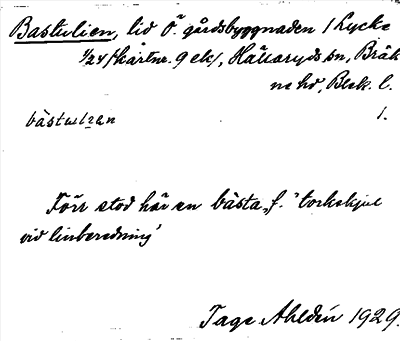 Bastulien, lid Ö. gårdsbyggnaden / Lycke
1/24 /kartnr. 9 ek/, Hällaryds sn, Bräk
ne hd, Blek. l.
bàstulıən 1.
Förr stod här en bàsta, f. "torkskjul
vid linberedning"
Tage Ahldén 1929.